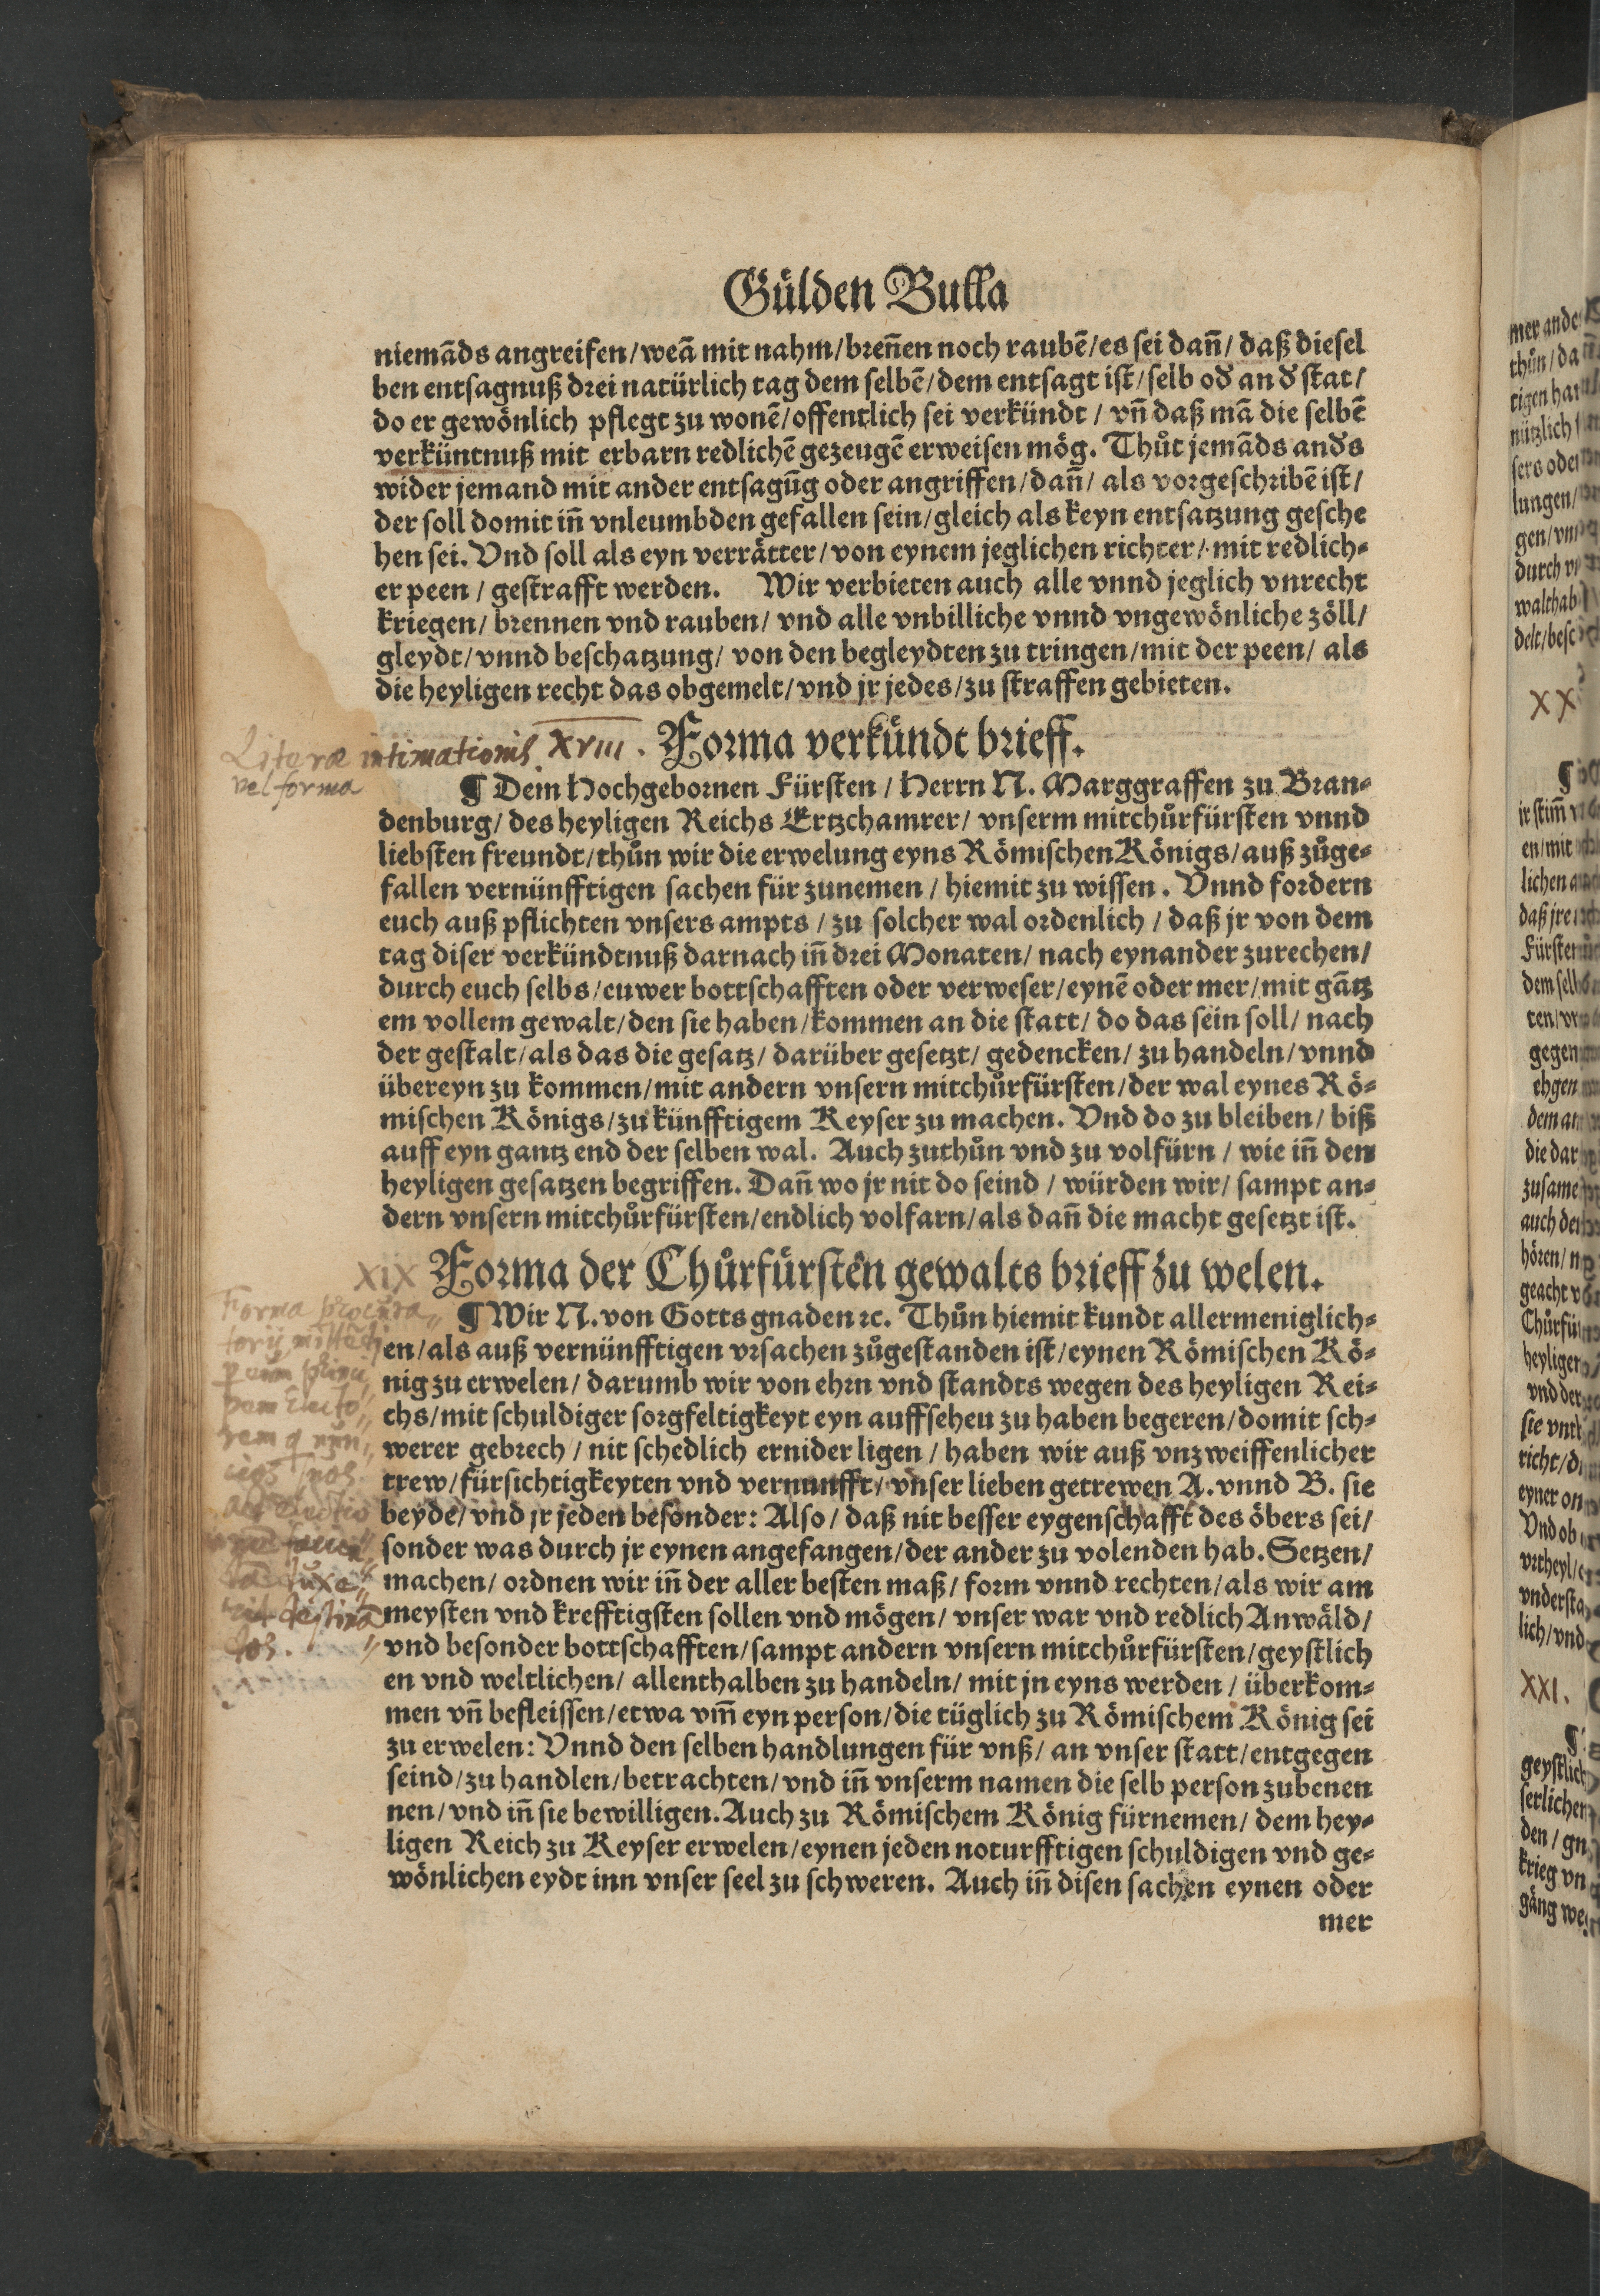 Gülden Bulla
niemãds angreifen/weã mit nahm/breñen noch raubẽ/es sei dañ/daß diesel
ben entsagnuß drei natürlich tag dem selbẽ/dem entsagt ist/selb oď an ď stat/
do er gewönlich pflegt zu wonẽ/offentlich sei verkündt/vñ daß mã die selbẽ
verküntnuß mit erbarn redlichẽ gezeugẽ erweisen mög. Thůt jemãds anďs
wider jemand mit ander entsagũg oder angriffen/dañ/als vorgeschribẽ ist/
der soll domit iñ vnleumbden gefallen sein/gleich als keyn entsatzung gesche
hen sei. Vnd soll als eyn verrätter/von eynem jeglichen richter/mit redlich⸗
er peen/gestrafft werden. Wir verbieten auch alle vnnd jeglich vnrecht
kriegen/brennen vnd rauben/vnd alle vnbilliche vnnd vngewönliche zöll/
gleydt/vnnd beschatzung/von den begleydten zu tringen/mit der peen/als
die heyligen recht das obgemelt/vnd jr jedes/zu straffen gebieten.
Literæ intimationis XVIII. Forma verkündt brieff.
vel forma
¶ Dem Hochgebornen Fürsten/Herrn N. Marggraffen zu Bran⸗
denburg/des heyligen Reichs Ertzchamrer/vnserm mitchůrfürsten vnnd
liebsten freundt/thůn wir die erwelung eyns Römischen Königs/auß zůge⸗
fallen vernünfftigen sachen für zunemen/hiemit zu wissen. Vnnd fordern
euch auß pflichten vnsers ampts/zu solcher wal ordenlich/daß jr von dem
tag diser verkündtnuß darnach iñ drei Monaten/nach eynander zurechen/
durch euch selbs/euwer bottschafften oder verweser/eynẽ oder mer/mit gãtz
em vollem gewalt/den sie haben/kommen an die statt/do das sein soll/nach
der gestalt/als das die gesatz/darüber gesetzt/gedencken/zu handeln/vnnd
übereyn zu kommen/mit andern vnsern mitchůrfürsten/der wal eynes Rö⸗
mischen Königs/zu künfftigem Keyser zu machen. Vnd do zu bleiben/biß
auff eyn gantz end der selben wal. Auch zuthůn vnd zu volfürn/wie iñ den
heyligen gesatzen begriffen. Dañ wo jr nit do seind/würden wir/sampt an⸗
dern vnsern mitchůrfürsten/endlich volfarn/als dañ die macht gesetzt ist.
XIX Forma der Chůrfürsten gewalts brieff zu welen.
Forma procura
¶ Wir N. von Gotts gnaden ꝛc. Thůn hiemit kundt allermeniglich⸗
en/als auß vernünfftigen vrsachen zůgestanden ist/eynen Römischen Kö⸗
nig zu erwelen/darumb wir von ehrn vnd standts wegen des heyligen Rei⸗
chs/mit schuldiger sorgfeltigkeyt eyn auffseheu zu haben begeren/domit sch⸗
werer gebrech/nit schedlich ernider ligen/haben wir auß vnzweiffenlicher
trew/fürsichtigkeyten vnd vernunfft/vnser lieben getrewen A. vnnd B. sie
beyde/vnd jr jeden besonder: Also/daß nit besser eygenschafft des öbers sei/
sonder was durch jr eynen angefangen/der ander zu volenden hab. Setzen/
machen/ordnen wir iñ der aller besten maß/form vnnd rechten/als wir am
meysten vnd krefftigsten sollen vnd mögen/vnser war vnd redlich Anwäld/
vnd besonder bottschafften/sampt andern vnsern mitchůrfürsten/geystlich
en vnd weltlichen/allenthalben zu handeln/mit jn eyns werden/überkom⸗
men vñ befleissen/etwa vm̃ eyn person/die tüglich zu Römischem König sei
zu erwelen: Vnnd den selben handlungen für vnß/an vnser statt/entgegen
seind/zu handlen/betrachten/vnd iñ vnserm namen die selb person zubenen
nen/vnd iñ sie bewilligen. Auch zu Römischem König fürnemen/dem hey⸗
ligen Reich zu Keyser erwelen/eynen jeden noturfftigen schuldigen vnd ge⸗
wönlichen eydt inn vnser seel zu schweren. Auch iñ disen sachen eynen oder
mer
XX
XXI.